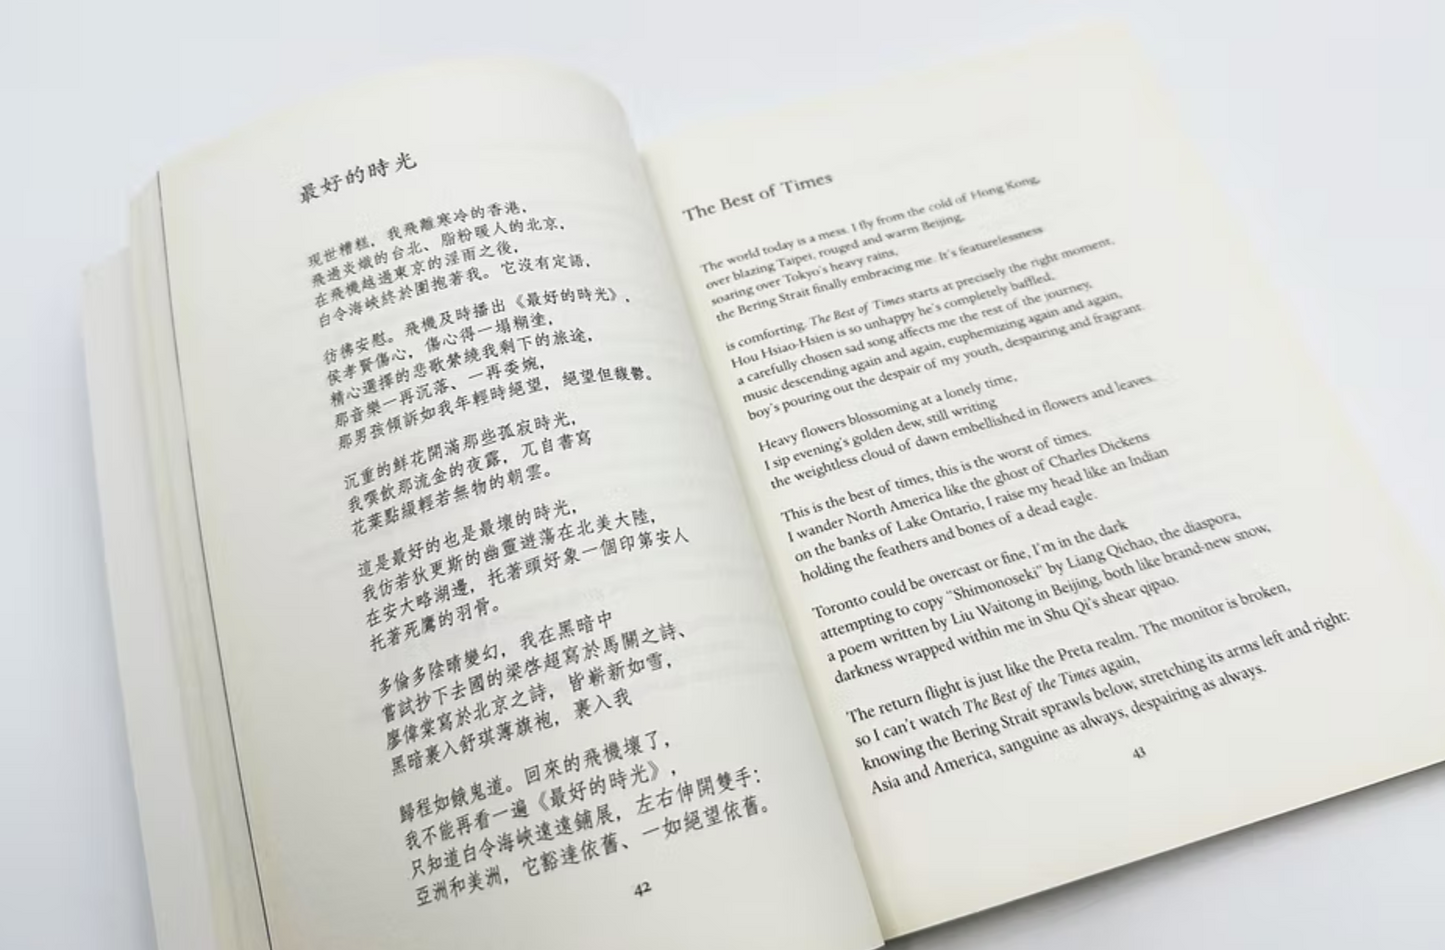 最好的時光
現世糟糕，我飛離寒冷的香港，
飛過炎熾的台北、脂粉暖人的北京，
在飛機越過東京的淫雨之後，
白令海峽終於圍抱著我。它沒有定語，
彷彿安慰。飛機及時播出《最好的時光》，
侯孝賢傷心，傷心得一塌糊塗，
精心選擇的悲歌縈繞我剩下的旅途，
那音樂一再沉落、一再委婉，
那男孩傾訴如我年輕時絕望，絕望但馥鬱。
沉重的鮮花開滿那些孤寂時光，
我啜飲那流金的夜露，兀自書寫
花葉點綴輕若無物的朝雲。
這是最好的也是最壞的時光，
我仿若狄更斯的幽靈遊蕩在北美大陸，
在安大略湖邊，托著頭好象一個印第安人
托著死鷹的羽骨。
多倫多陰晴變幻，我在黑暗中
嘗試抄下去國的梁啓超寫於馬關之詩、
廖偉棠寫於北京之詩，皆嶄新如雪，
黑暗裹入舒琪薄旗袍，裹入我
歸程如餓鬼道。回來的飛機壞了，
我不能再看一遍《最好的時光》，
只知道白令海峽遠遠鋪展，左右伸開雙手：
亞洲和美洲，它豁達依舊、一如絕望依舊。
42
The Best of Times
The world today is a mess. I fly from the cold of Hong Kong,
over blazing Taipei, rouged and warm Beijing,
soaring over Tokyo's heavy rains,
the Bering Strait finally embracing me. It's featurelessness
is comforting. The Best of Times starts at precisely the right moment.
Hou Hsiao-Hsien is so unhappy he's completely baffled,
a carefully chosen sad song affects me the rest of the journey,
music descending again and again, euphemizing again and again,
boy's pouring out the despair of my youth, despairing and fragrant.
Heavy flowers blossoming at a lonely time,
I sip evening's golden dew, still writing
the weightless cloud of dawn embellished in flowers and leaves.
This is the best of times, this is the worst of times.
I wander North America like the ghost of Charles Dickens
on the banks of Lake Ontario, I raise my head like an Indian
holding the feathers and bones of a dead eagle.
Toronto could be overcast or fine, I'm in the dark
attempting to copy "Shimonoseki" by Liang Qichao, the diaspora,
a poem written by Liu Waitong in Beijing, both like brand-new snow,
darkness wrapped within me in Shu Qi's shear qipao.
The return flight is just like the Preta realm. The monitor is broken,
so I can't watch The Best of the Times again,
knowing the Bering Strait sprawls below, stretching its arms left and right:
Asia and America, sanguine as always, despairing as always.
43